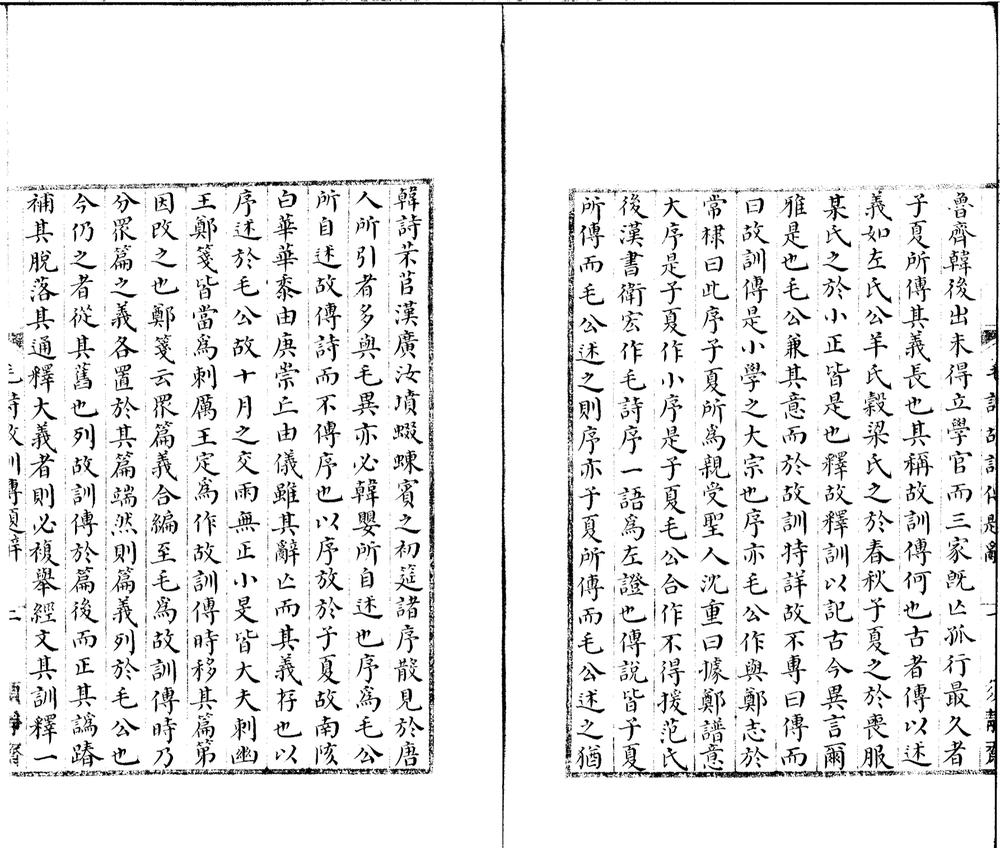 魯齊韓後出未得立學官而三家旣亾孤行最久者
子夏所傳其義長也其稱故訓傳何也古者傳以述
義如左氏公羊氏穀梁氏之於春秋子夏之於喪服
某氏之於小正皆是也釋故釋訓以記古今異言爾
雅是也毛公兼其意而於故訓特詳故不專曰傳而
曰故訓傳是小學之大宗也序亦毛公作與鄭志於
常棣曰此序子夏所爲親受聖人沈重曰據鄭譜意
大序是子夏作小序是子夏毛公合作不得援范氏
後漢書衛宏作毛詩序一語爲左證也傳說皆子夏
所傳而毛公述之則序亦子夏所傳而毛公述之猶
韓詩芣苢漢廣汝墳蝃蝀賓之初筵諸序散見於唐
人所引者多與毛異亦必韓嬰所自述也序爲毛公
所自述故傳詩而不傳序也以序放於子夏故南陔
白華華黍由庚崇丘由儀雖其辭亾而其義存也以
序述於毛公故十月之交雨無正小旻皆大夫刺幽
王鄭箋皆當爲刺厲王定爲作故訓傳時移其篇第
因改之也鄭箋云眾篇義合編至毛爲故訓傳時乃
分眾篇之義各置於其篇端然則篇義列於毛公也
今仍之者從其舊也列故訓傳於篇後而正其譌踳
補其脫落其通釋大義者則必複舉經文其訓釋一
毛詩故訓傳題辭 二